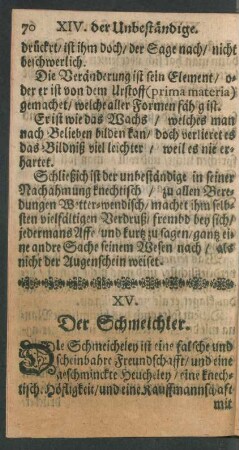 70 XIV. der Unbeständige.
drückrt/ ist ihm doch/ der Sage nach/ nicht
beschwerlich.
Die Veränderung ist sein Element/ o-
der er ist von dem Urstoff (prima materia)
gemachet/ welche aller Formen fähig ist.
Er ist wie das Wachs / welches man
nach Belieben bilden kan/ doch verlieret es
das Bildniß viel leichter / weil es nie er-
hartet.
Schließlich ist der unbeständige in seiner
Nachahmung knechtisch / zu allen Vere-
dungen Wetter-wendisch/ machet ihm selb-
sten vielfältigen Verdruß/ frembd bey sich/
jedermans Aff/ und kurtz zu sagen/ gantz ei-
ne andre Sache seinem Wesen nach / als
nicht der Augenschein weiset.
XV.
Der Schmeichler.
Die Schmeicheley ist eine falsche und
scheinbahre Freundschafft/ und eine
geschminckte Heucheley/ eine knech-
tisch. Höfligkeit/ und eine Kauffmannschaft
mit